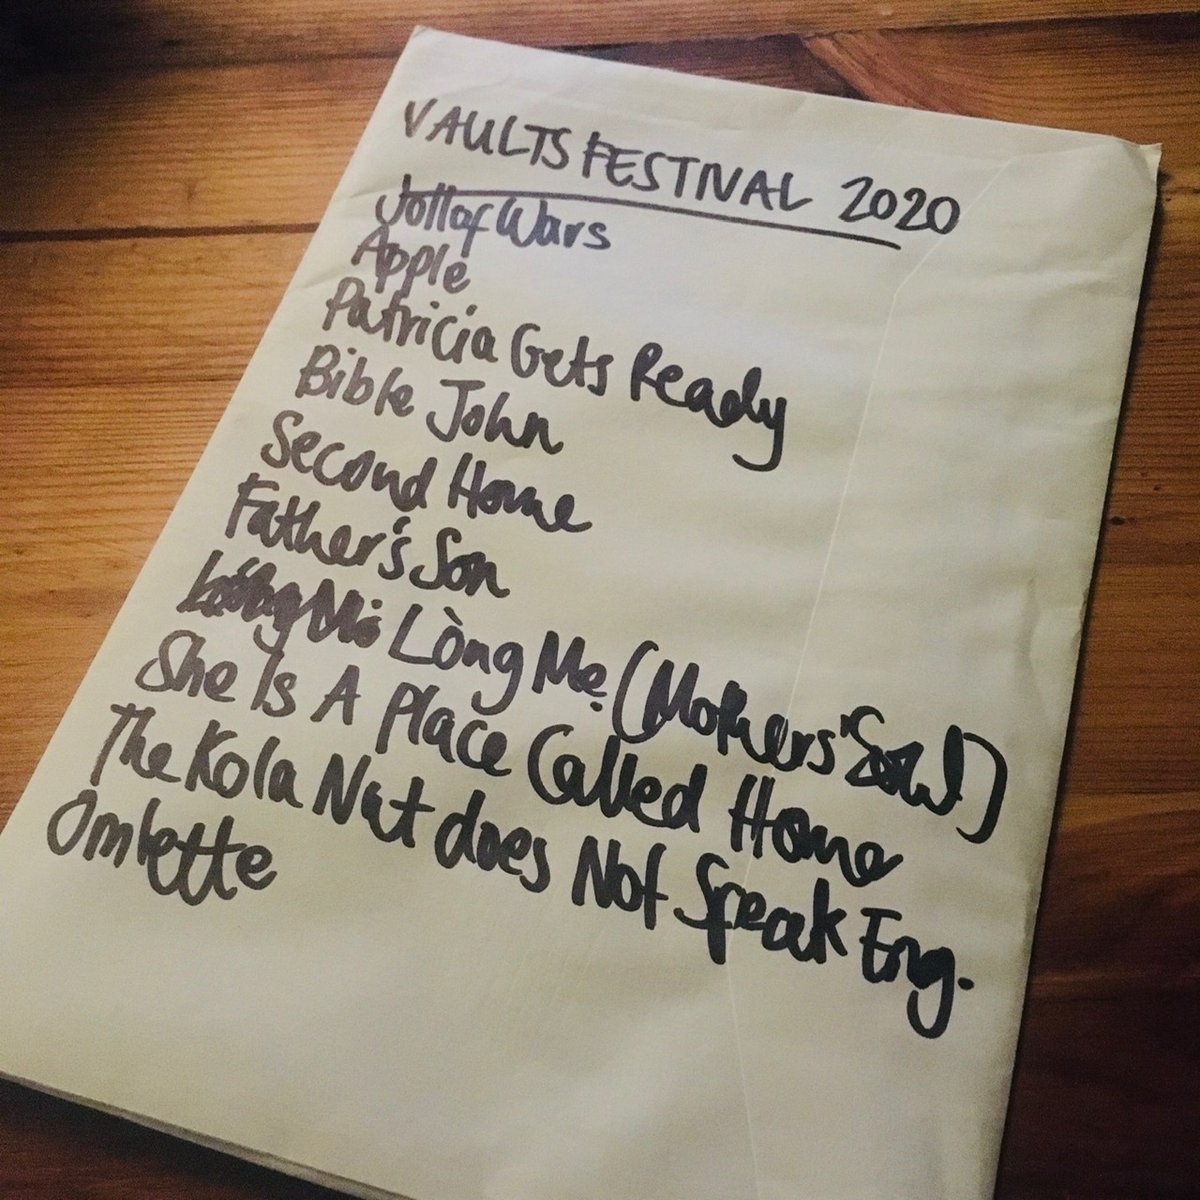 VAULTS FESTIVAL 2020
Jollof Wars
Apple
Patricia Gets Ready
Bible John
Second Home
Father's Son
Lòng Mẹ (Mothers'
She Is A Place Called Home
The Kola Nut does Not Speak Eng.
Omlette